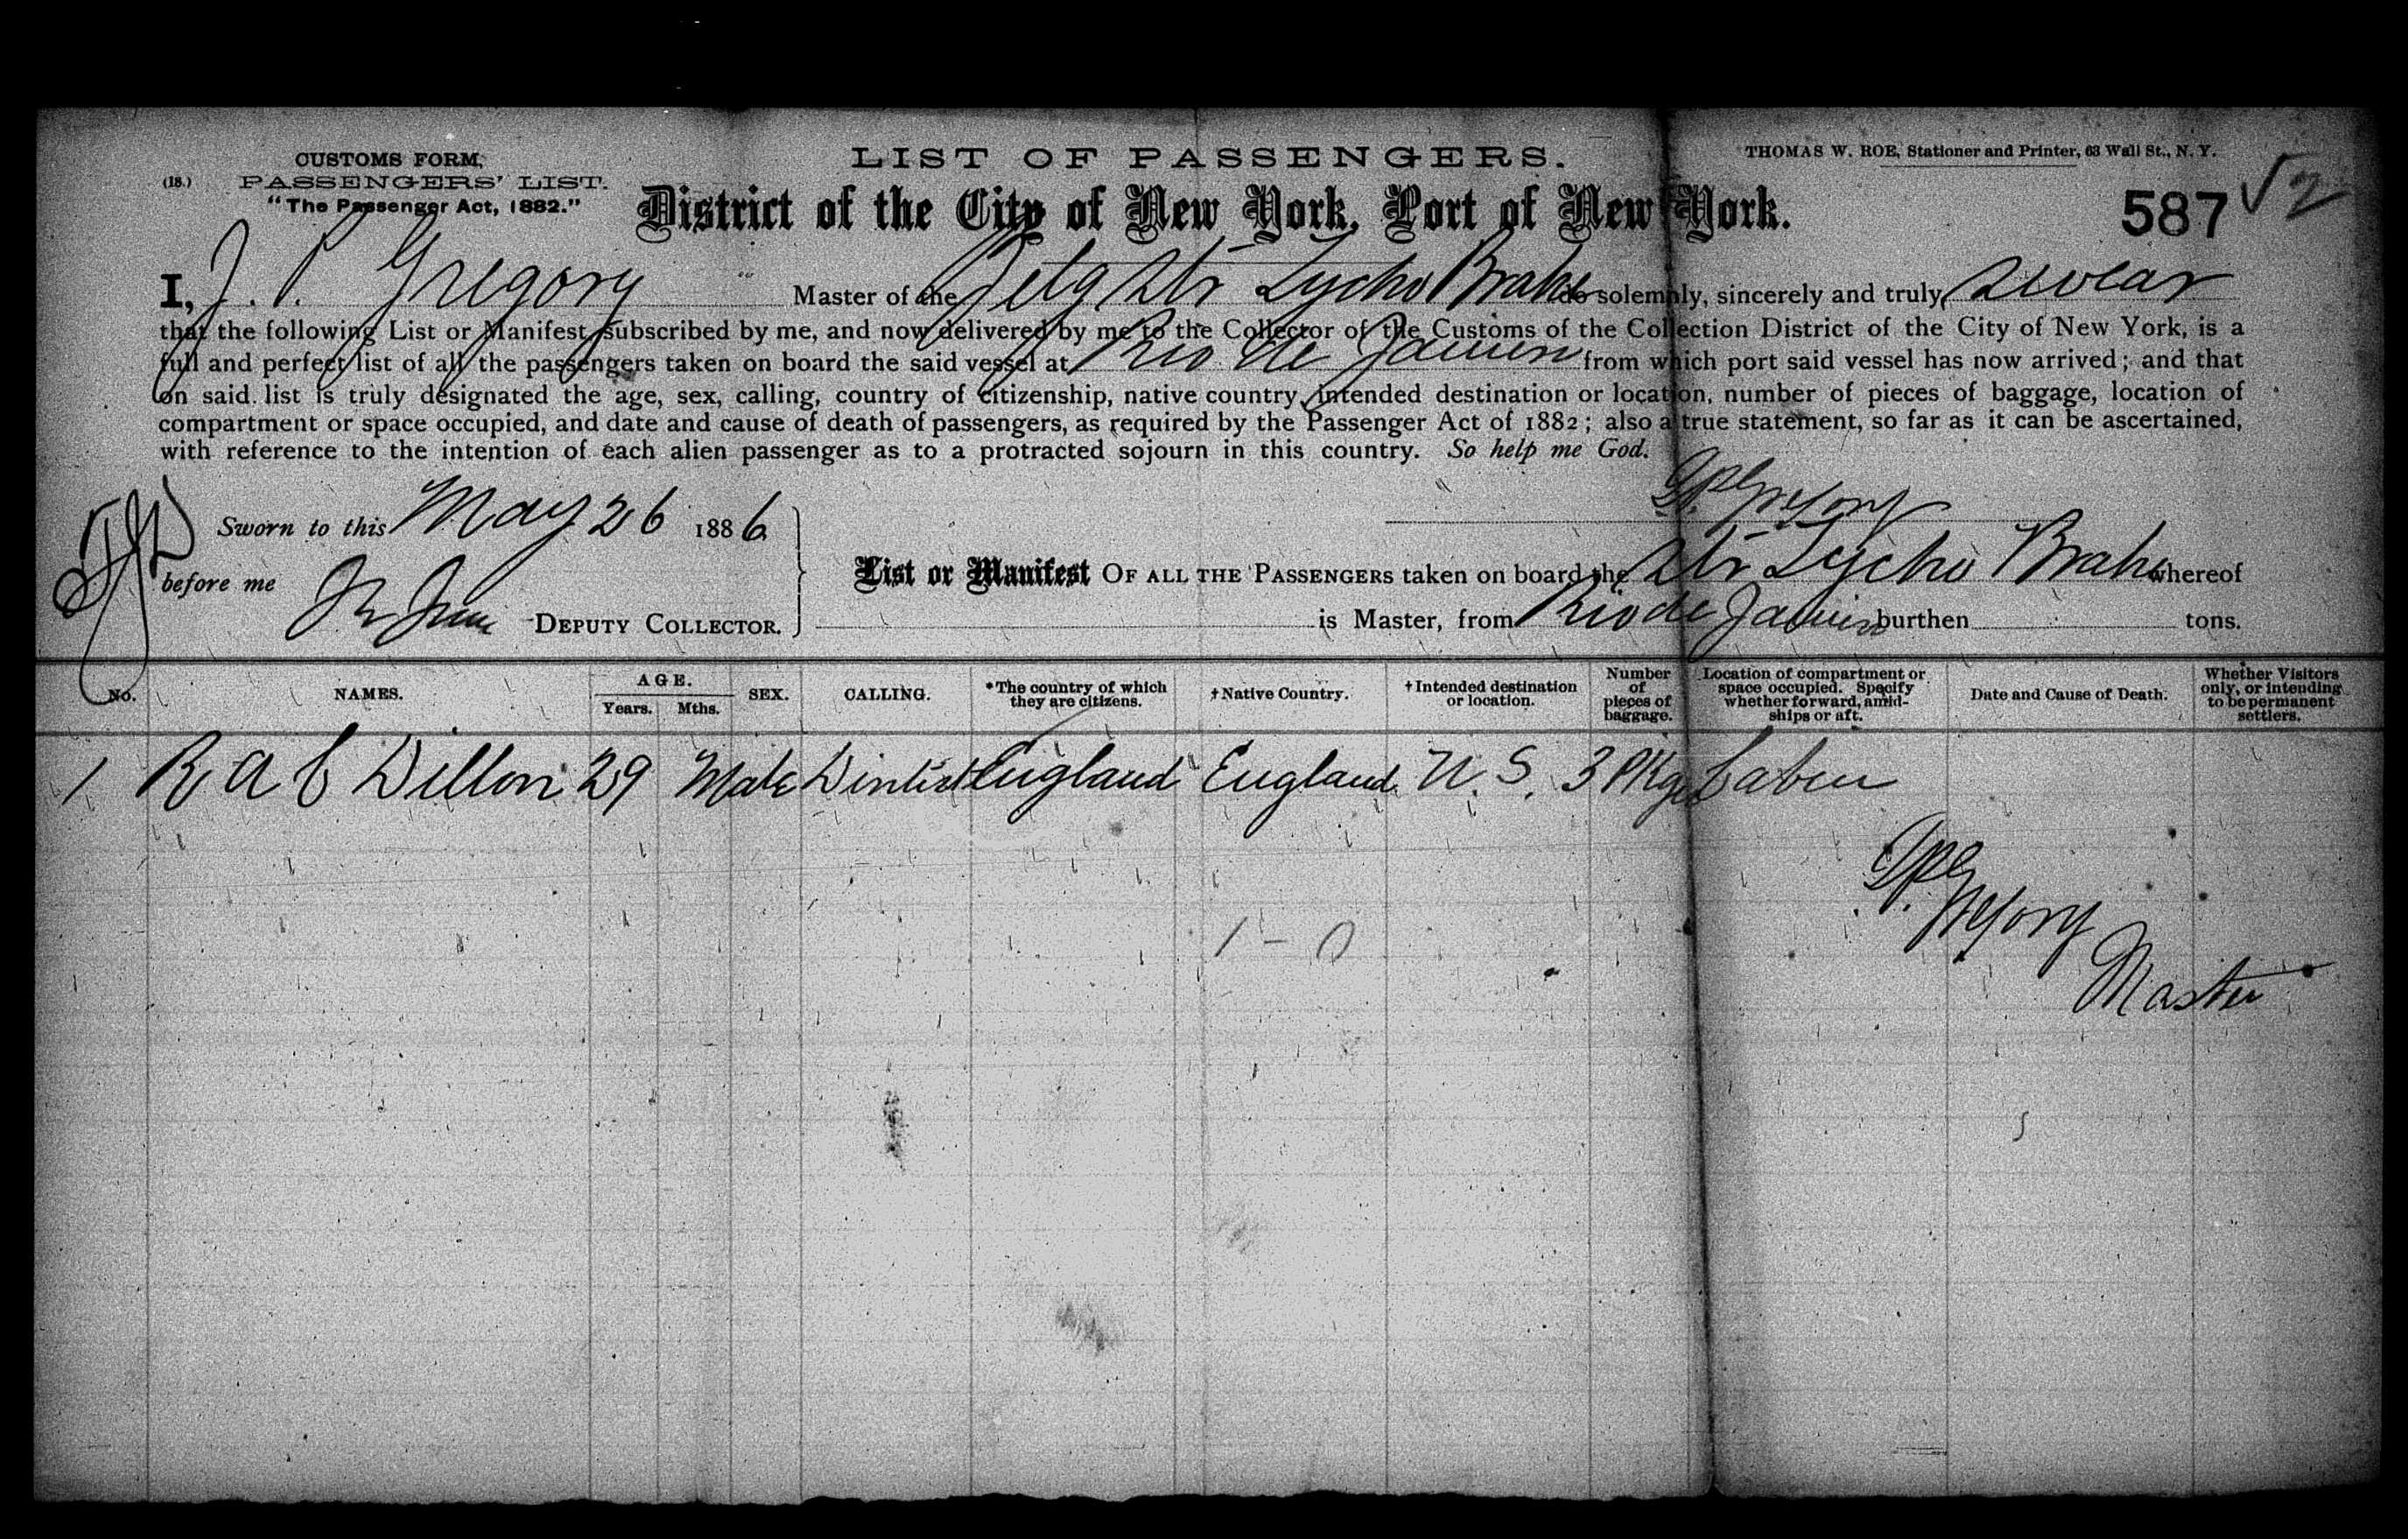 CUSTOMS FORM,
(18.) PASSENGERS' LIST.
"The Passenger Act, 1882."
LIST OF PASSENGERS.
THOMAS W. ROE, Stationer and Printer, 63 Wall St., N. Y.
District of the City of New York, Port of New York.
587
I, J. P. Gregory Master of the Belg Str Tycho Brahe do solemnly, sincerely and truly swear
that the following List or Manifest, subscribed by me, and now delivered by me to the Collector of the Customs of the Collection District of the City of New York, is a
full and perfect list of all the passengers taken on board the said vessel at Rio de Janeiro from which port said vessel has now arrived; and that
on said list is truly designated the age, sex, calling, country of citizenship, native country, intended destination or location, number of pieces of baggage, location of
compartment or space occupied, and date and cause of death of passengers, as required by the Passenger Act of 1882; also a true statement, so far as it can be ascertained,
with reference to the intention of each alien passenger as to a protracted sojourn in this country. So help me God.
Gregory
Sworn to this May 26 1886
before me
DEPUTY COLLECTOR.
List or Manifest OF ALL THE PASSENGERS taken on board the Str Tycho Brahe whereof
is Master, from Rio de Janeiro burthen tons.
No. NAMES. AGE. Years. Mths. SEX. CALLING. *The country of which they are citizens. †Native Country. †Intended destination or location. Number of pieces of baggage. Location of compartment or space occupied. Specify whether forward, amidships or aft. Date and Cause of Death. Whether Visitors only, or intending to be permanent settlers.
1 R A C Dillon 29 Male Dentist England England U. S. 3 Pkgs Cabin
Gregory
Master
1 - 0